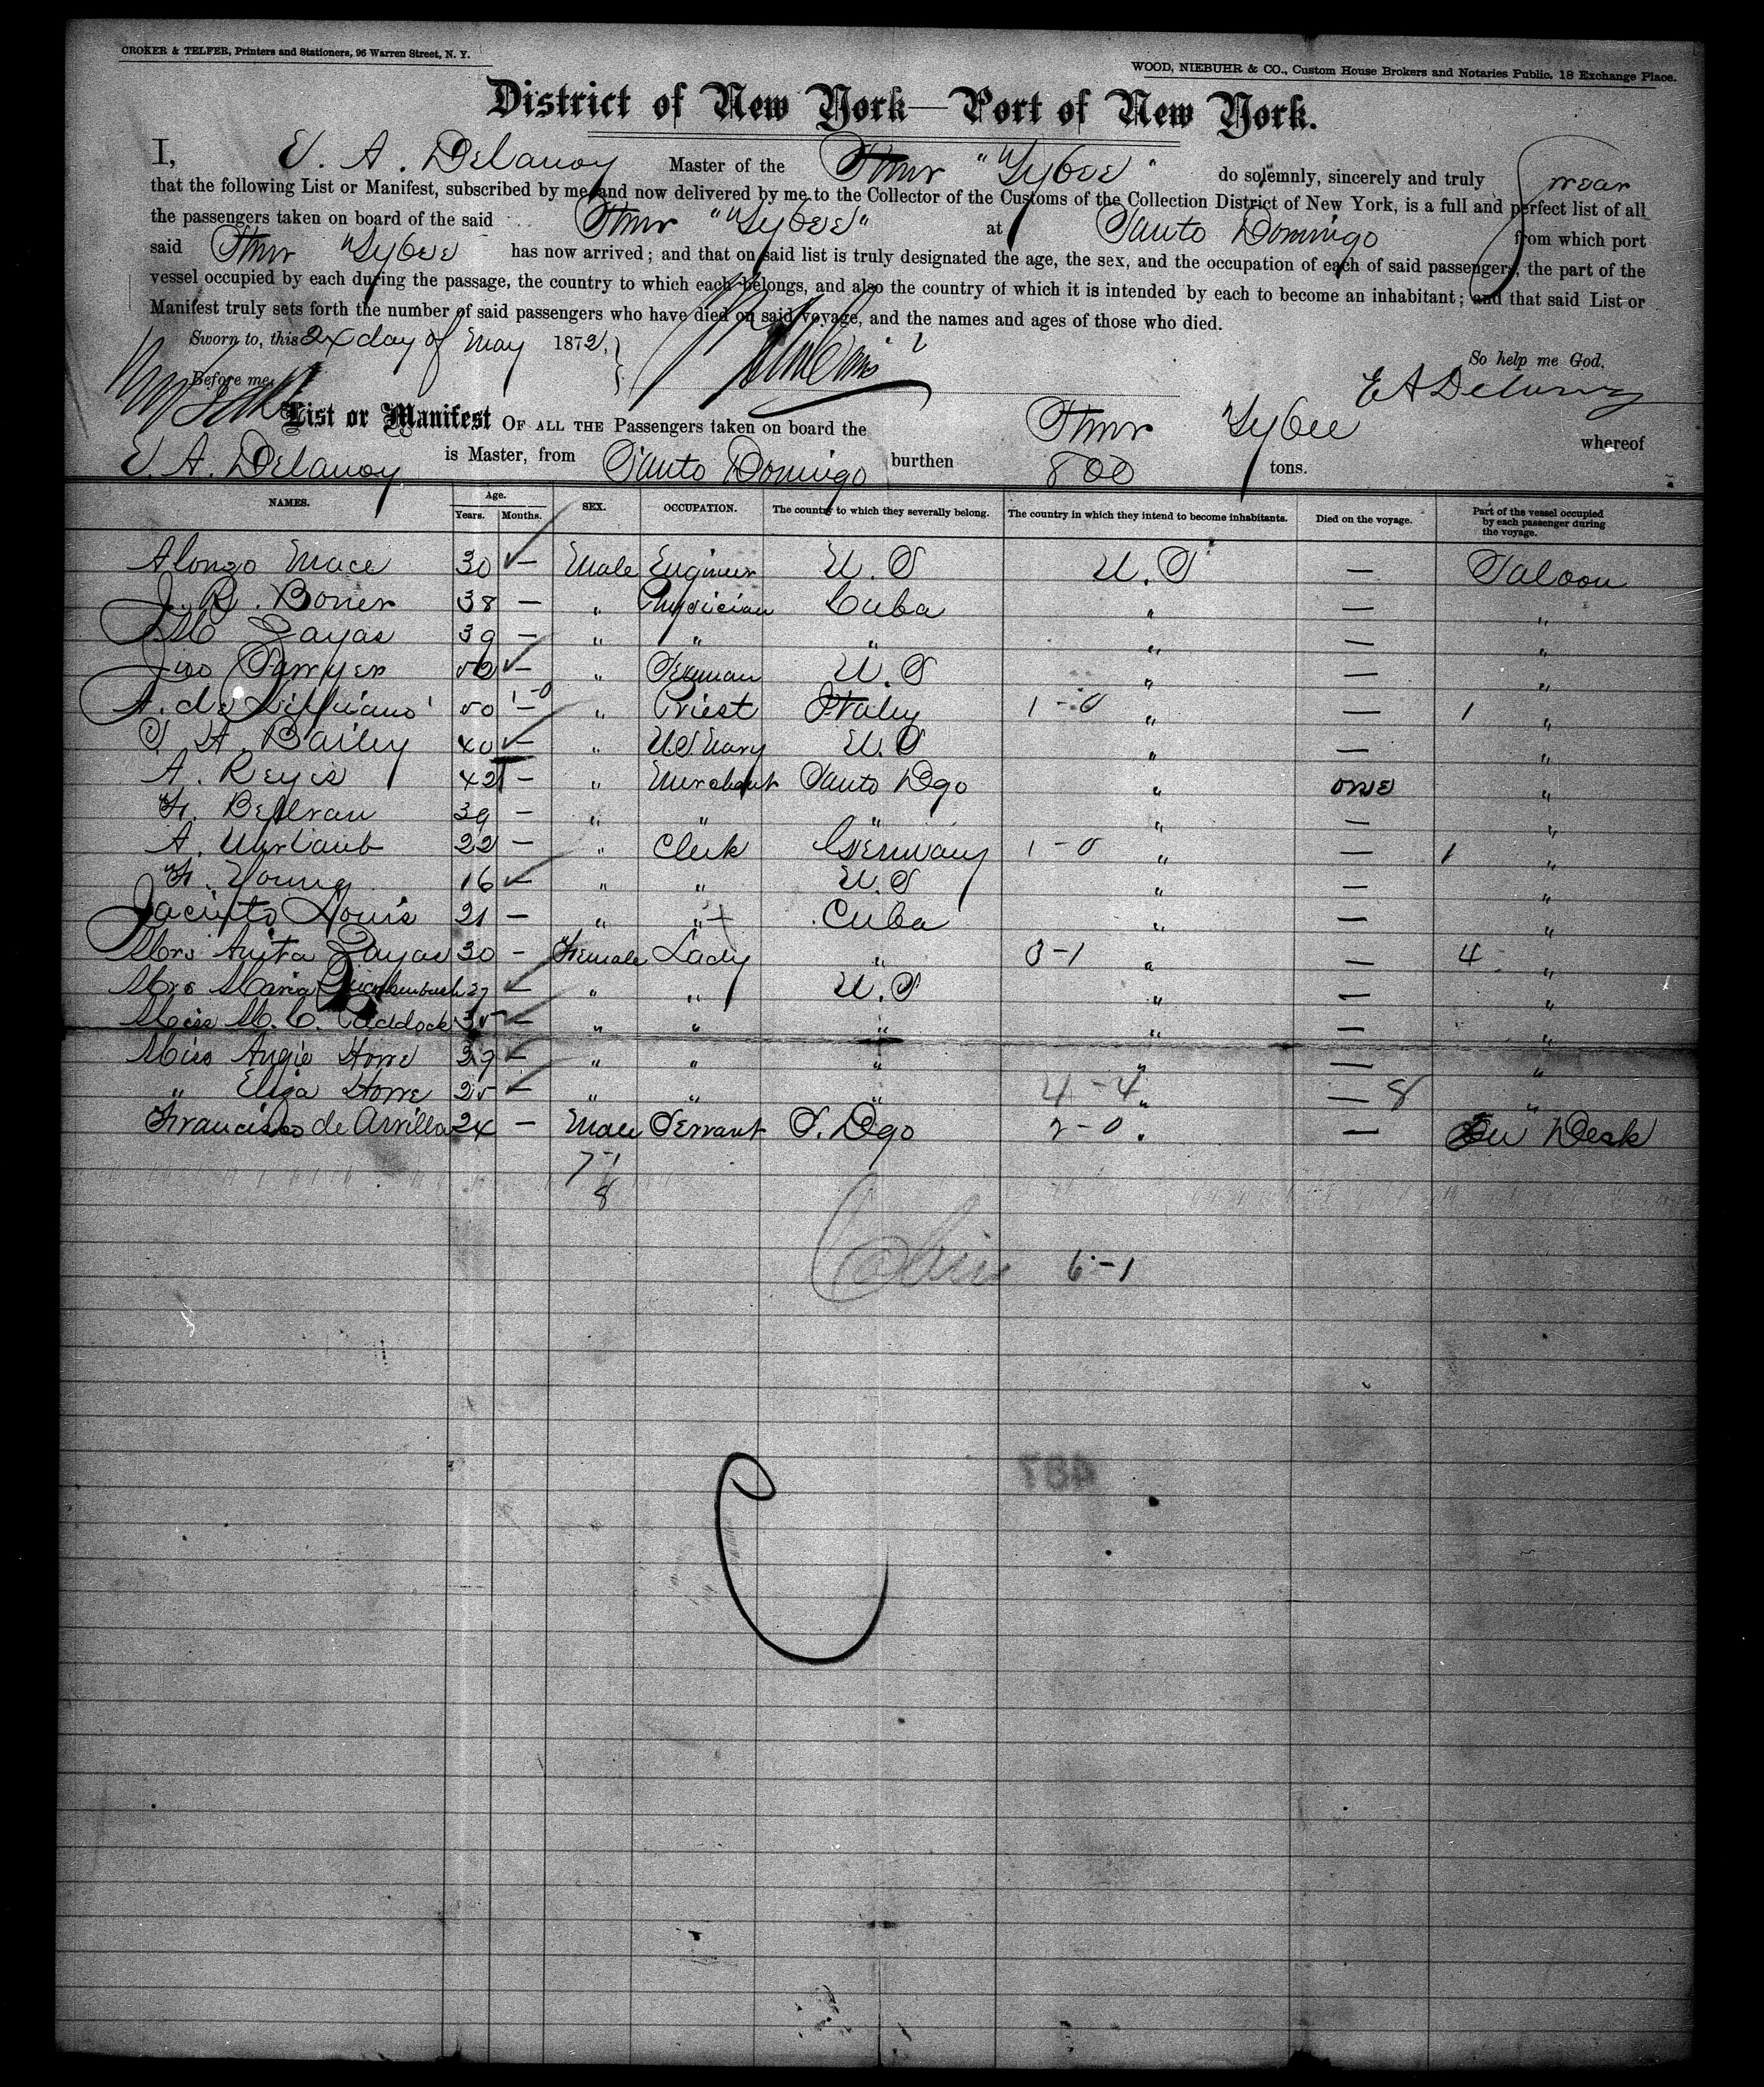 CROKER & TELFER, Printers and Stationers, 96 Warren Street, N. Y.
WOOD, NIEBUHR & CO., Custom House Brokers and Notaries Public, 18 Exchange Place.
District of New York—Port of New York.
I, E. A. Delanoy Master of the Stmr "Tybee" do solemnly, sincerely and truly swear
that the following List or Manifest, subscribed by me and now delivered by me to the Collector of the Customs of the Collection District of New York, is a full and perfect list of all
the passengers taken on board of the said Stmr "Tybee" at Santo Domingo from which port
said Stmr Tybee has now arrived; and that on said list is truly designated the age, the sex, and the occupation of each of said passengers, the part of the
vessel occupied by each during the passage, the country to which each belongs, and also the country of which it is intended by each to become an inhabitant; and that said List or
Manifest truly sets forth the number of said passengers who have died on said voyage, and the names and ages of those who died.
Sworn to, this 24 day of May 1872, So help me God.
Before me, E A Delanoy
List or Manifest OF ALL THE Passengers taken on board the Stmr Tybee whereof
E. A. Delanoy is Master, from Santo Domingo burthen 800 tons.
NAMES. Age. Years. Months. SEX. OCCUPATION. The country to which they severally belong. The country in which they intend to become inhabitants. Died on the voyage. Part of the vessel occupied by each passenger during the voyage.
Alonzo Mace 30 — Male Engineer U. S U. S — Saloon
J. R. Borrer 38 — " Physician Cuba " — "
Zayas 39 — " " " " — "
Jas Sawyer — " Seaman U. S " — "
A. de 50 1-0 " Priest Italy 1-0 " — 1 "
S. A. Bailey 40 — " US Navy U. S " — "
A. Reyes 42 — " Merchant Santo Dgo " one "
F. Beltran 39 — " " " " — "
A. Uhrlaub 22 — " Clerk Germany 1-0 " — 1 "
F. Young 16 — " " U. S " — "
Jacinto Louis 21 — " " Cuba " — "
Mrs Anita Zayas 30 — Female Lady " 0-1 " — 4 "
Mrs Maria Quackenbush 27 — " " U. S " — "
Miss M. C. Caddock 35 — " " " " — "
Miss Angie Howe 29 — " " " " — "
" Eliza Howe 25 — " " " 4-4 " — 8 "
Francisco de Arvilla 24 — Male Servant S. Dgo 2-0 " — Deck
7-1
8
6-1
C
487